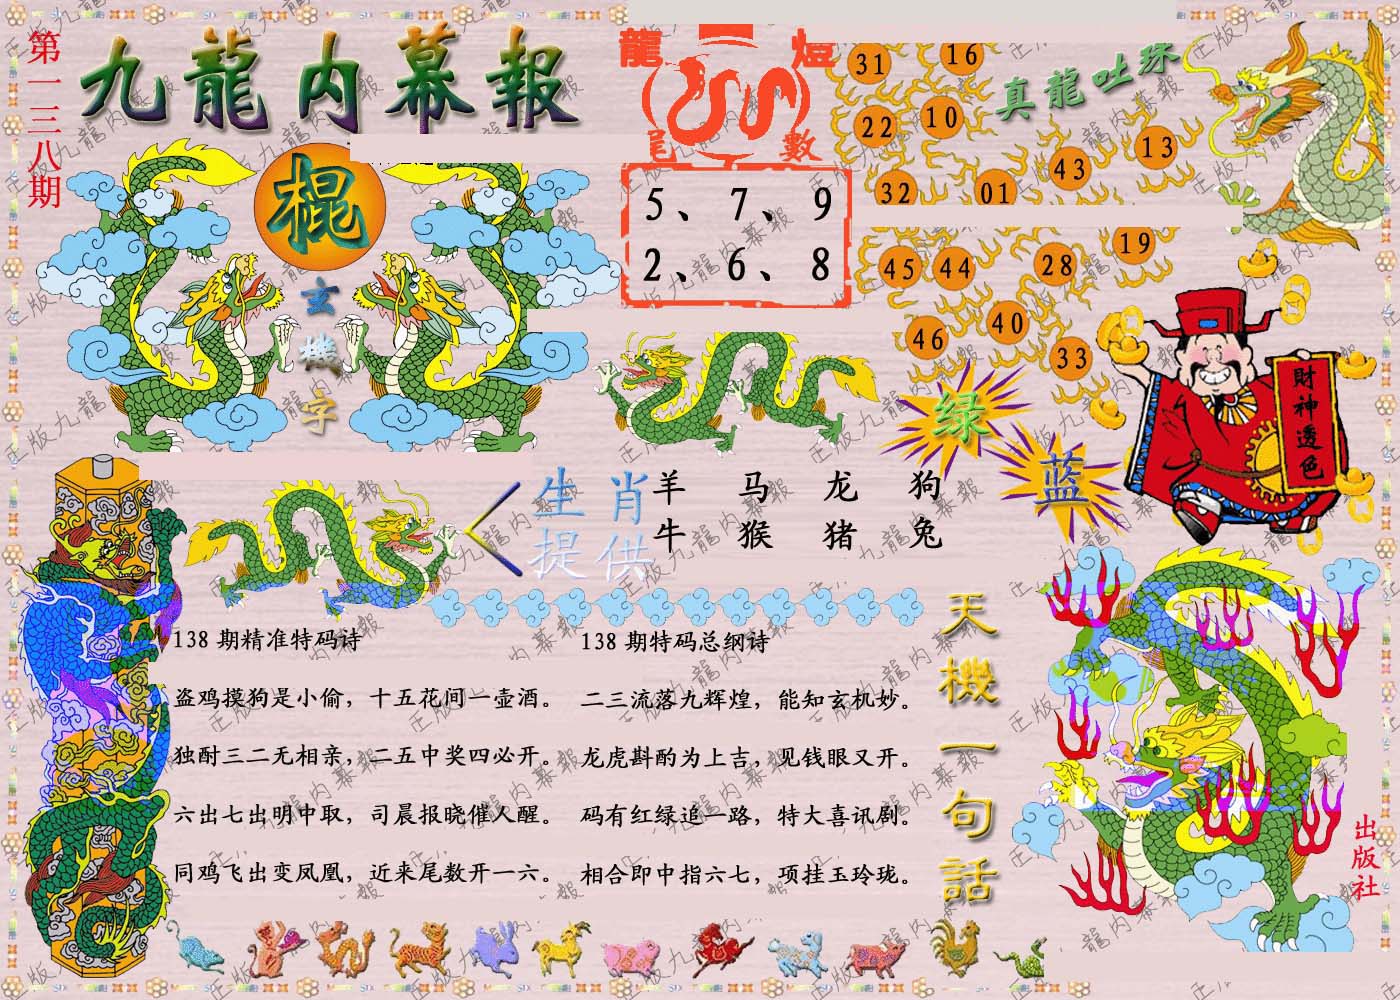 第一三八期
九龍内幕報
棍
玄機字
龍煌
尾數
5、7、9
2、6、8
真龍吐珠
31
16
22
10
13
43
32
01
19
45
44
28
46
40
33
绿
蓝
財神透色
生肖
提供
羊 马 龙 狗
牛 猴 猪 兔
138 期精准特码诗
盗鸡摸狗是小偷，十五花间一壶酒。
独酌三二无相亲，二五中奖四必开。
六出七出明中取，司晨报晓催人醒。
同鸡飞出变凤凰，近来尾数开一六。
138 期特码总纲诗
二三流落九辉煌，能知玄机妙。
龙虎斟酌为上吉，见钱眼又开。
码有红绿追一路，特大喜讯剧。
相合即中指六七，项挂玉玲珑。
天機一句話
出版社
正版九龍内幕報